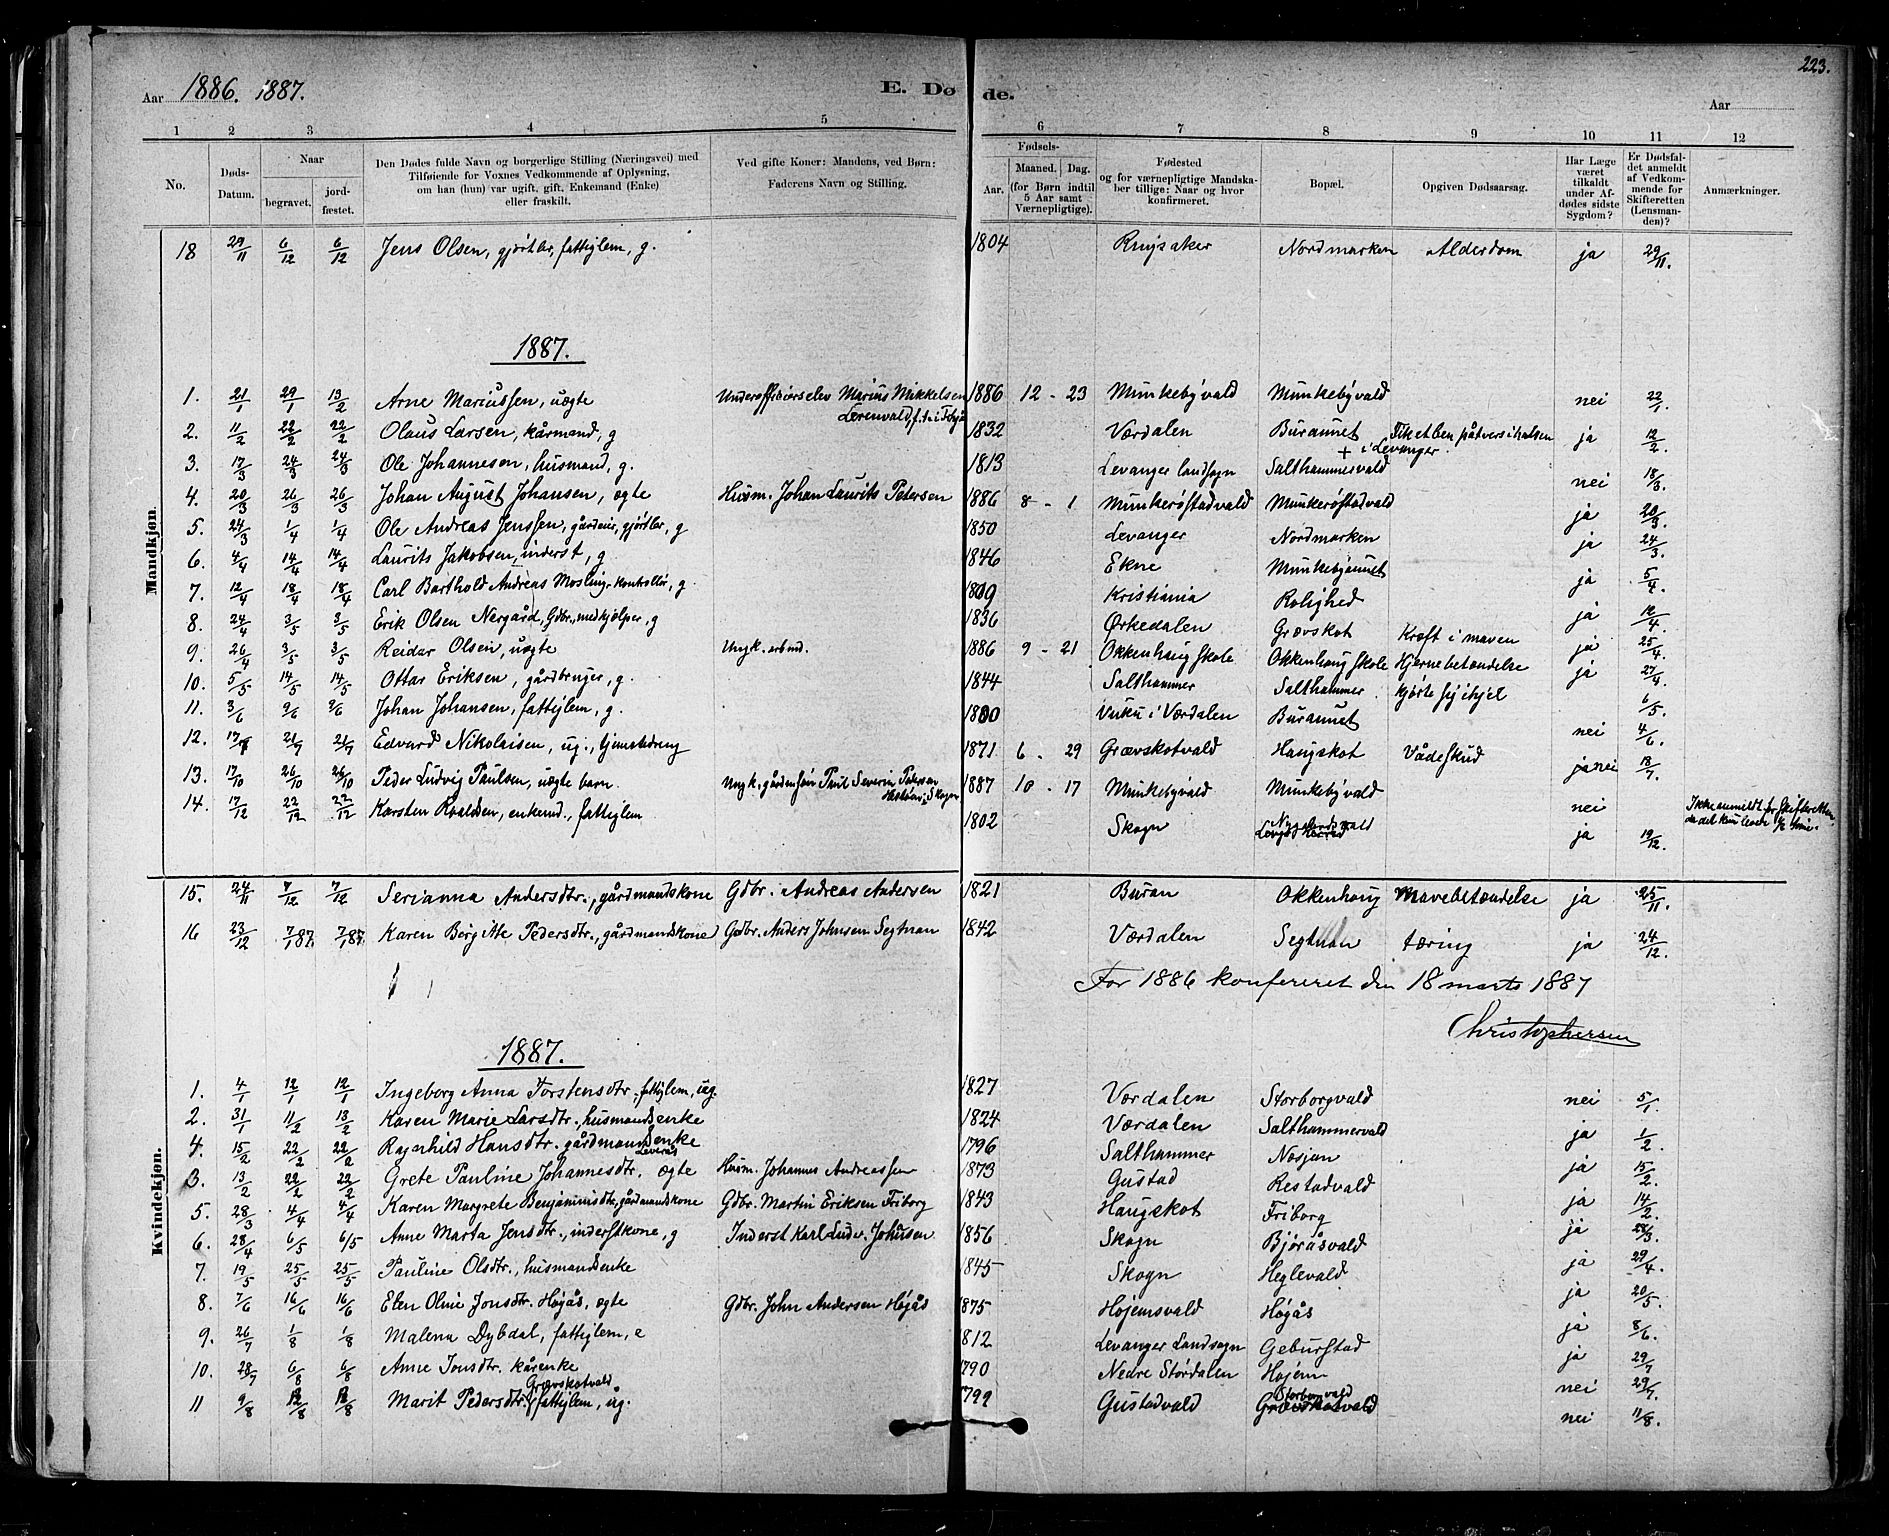 223.
Aar 1886. 1887. E. Døde. Aar
1 2 3 4 5 6 7 8 9 10 11 12
No. Døds-Datum. Naar begravet. jordfæstet. Den Dødes fulde Navn og borgerlige Stilling (Næringsvei) med Tilføiende for Voxnes Vedkommende af Oplysning, om han (hun) var ugift, gift, Enkemand (Enke) eller fraskilt. Ved gifte Koner: Mandens, ved Børn: Faderens Navn og Stilling. Fødsels- Aar. Maaned. Dag. (for Børn indtil 5 Aar samt Værnepligtige). Fødested og for værnepligtige Mandskaber tillige: Naar og hvor konfirmeret. Bopæl. Opgiven Dødsaarsag. Har Læge været tilkaldt under Afdødes sidste Sygdom? Er Dødsfaldet anmeldt af Vedkommende for Skifteretten (Lensmanden)? Anmærkninger.
Mandkjøn.
18 29/11 6/12 6/12 Jens Olsen, gjørtler, fattiglem, g. 1804 Ringsaker Nordmarken Alderdom ja 29/11.
1887.
1. 21/1 29/1 13/2 Arne Mariussen, uægte Underofficerselev Marius Mikkelsen 1886 12 - 23 Munkebyvald Munkebyvald nei 22/1.
2. 11/2 22/2 22/2 Olaus Larsen, kårmand, g 1832 Værdalen Buraunet Fiskeben påtvers i halsen + i Levanger. ja 12/2
3. 17/3 24/3 24/3 Ole Johannesen, husmand, g. 1813 Levanger landsogn Salthammervald nei 18/3.
4. 20/3 26/3 26/3 Johan August Johansen, ægte Husm. Johan Laurits Petersen 1886 8 - 1 Munkerøstadvald Munkerøstadvald ja 20/3.
5. 24/3 1/4 1/4 Ole Andreas Jenssen, gårdeier, gjørtler, g 1850 Levanger Nordmarken ja 24/3.
6. 4/4 14/4 14/4 Laurits Jakobsen, inderst, g 1846 Ekne Munkebyaunet ja 5/4
7. 12/4 18/4 18/4 Carl Barthold Andreas Mosling, kontrollør, g. Kristiania Rolighed ja
8. 24/4 3/5 3/5 Erik Olsen Nergård, Gdbr., medhjelper, g 1836 Ørkedalen Grævskot Kræft i maven ja 25/4
9. 26/4 3/5 3/5 Reidar Olsen, uægte Ungk. 1886 9 - 21 Okkenhaug Skole Okkenhaug Skole Hjernebetændelse ja 27/4
10. 5/5 14/5 14/5 Ottar Eriksen, gårdbruger, g. 1844 Salthammer Salthammer Kjørte sig ihjel 6/5.
11. 3/6 9/6 9/6 Johan Johansen, fattiglem, g. Vuku i Værdalen Buraunet nei 4/6.
12. 17/7 21/7 21/7 Edvard Nikolaisen, ug., tjenestedreng 1871 6 - 29 Grævskotvald Haugskot Vådeskud ja nei 18/7
13. 17/10 26/10 26/10 Peder Ludvig Paulsen, uægte barn Ungk., gårdmandssøn Paul Severin Petersen 1887 10 - 17 Munkebyvald Munkebyvald nei Ikke anmeldt for Skifteretten,
14. 17/12 22/12 22/12 Karsten Roaldsen, enkemd., fattiglem 1802 Skogn ja 19/12.
15. 24/11 7/12 7/12 Serianna Andersdtr., gårdmandskone Gdbr. Andreas Andersen 1821 Buran Okkenhaug Mavebetændelse ja 25/11.
16 23/12 7/1 87. 7/1 87. Karen Bergitte Pedersdtr., gårdmandskone Gdbr. Anders Johnsen Segtnan 1842 Værdalen Segtnan tæring ja 24/12.
For 1886 konfereret den 18 marts 1887
Christophersen
1887.
Kvindekjøn.
1. 4/1 12/1 12/1 Ingeborg Anna Torstensdtr. fattiglem, ug. 1827 Værdalen Storborgvald nei 5/1.
2. 31/1 11/2 13/2 Karen Marie Larsdtr., husmandsenke 1824 Værdalen Salthammervald ja 1/2.
4. 15/2 22/2 22/2 Ragnhild Hansdtr. gårdmandsenke 1796 Salthammer Nosjan ja 15/2.
3. 13/2 22/2 22/2 Grete Pauline Johannesdtr. ægte Husm. Johannes Andreassen 1873 Gustad Restadvald ja 14/2.
5. 28/3 4/4 4/4 Karen Margrete Benjaminsdtr, gårdmandskone Gdbr. Martin Eriksen Friborg 1843 Haugskot Friborg ja 28/3.
6. 28/4 6/5 6/5 Anne Marta Jensdtr., inderstkone, g Inderst Karl Ludv. Johnsen 1856 Skogn Bjøråsvald ja 29/4.
7. 19/5 25/5 25/5 Pauline Olsdtr., husmandsenke 1845 Skogn Heglevald ja 20/5.
8. 7/6 16/6 16/6 Elen Oline Jonsdtr. Høgås, ægte Gdbr. John Andersen Høgås 1875 Højemsvald Høgås ja 8/6.
9. 26/7 1/8 1/8 Malena Dybdal, fattiglem, e 1812 Levanger Landsogn Geburstad ja 29/7
10. 28/7 6/8 6/8 Anne Jonsdtr. kårenke 1790 Nedre Størdalen Højem nei 29/7.
11 9/8 12/8 Marit Pedersdtr. Grævskotvald, fattiglem, ug. 1799 Gustadvald Storborgvald Grævskotvald nei 11/8.